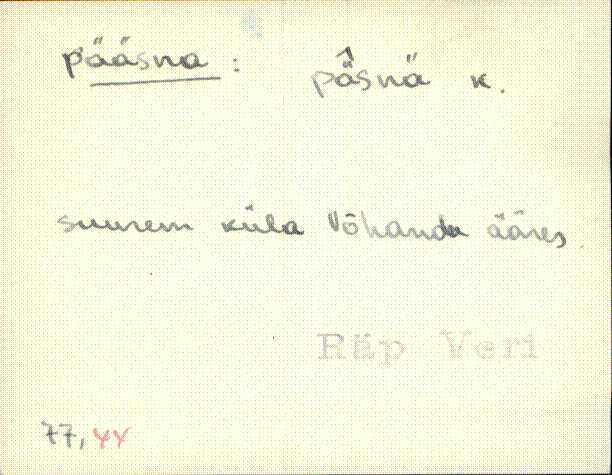 Pääsna : pä̂snä k.
suurem küla Võhandu ääres.
Räp Veri
77, 44